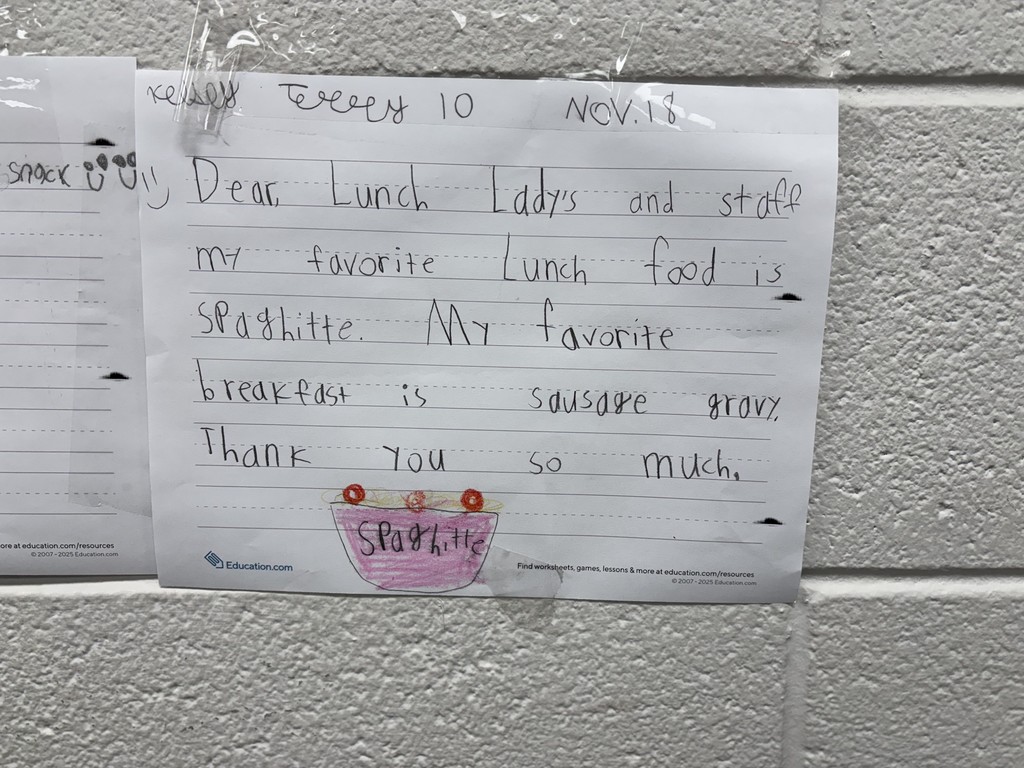 10 NOV. 18
snack
Dear, Lunch Lady's and staff
my favorite Lunch food is
spaghitte. My favorite
breakfast is sausage gravy.
Thank you so much.
spaghitte
ore at education.com/resources
© 2007 - 2025 Education.com
Education.com
Find worksheets, games, lessons & more at education.com/resources
© 2007 - 2025 Education.com